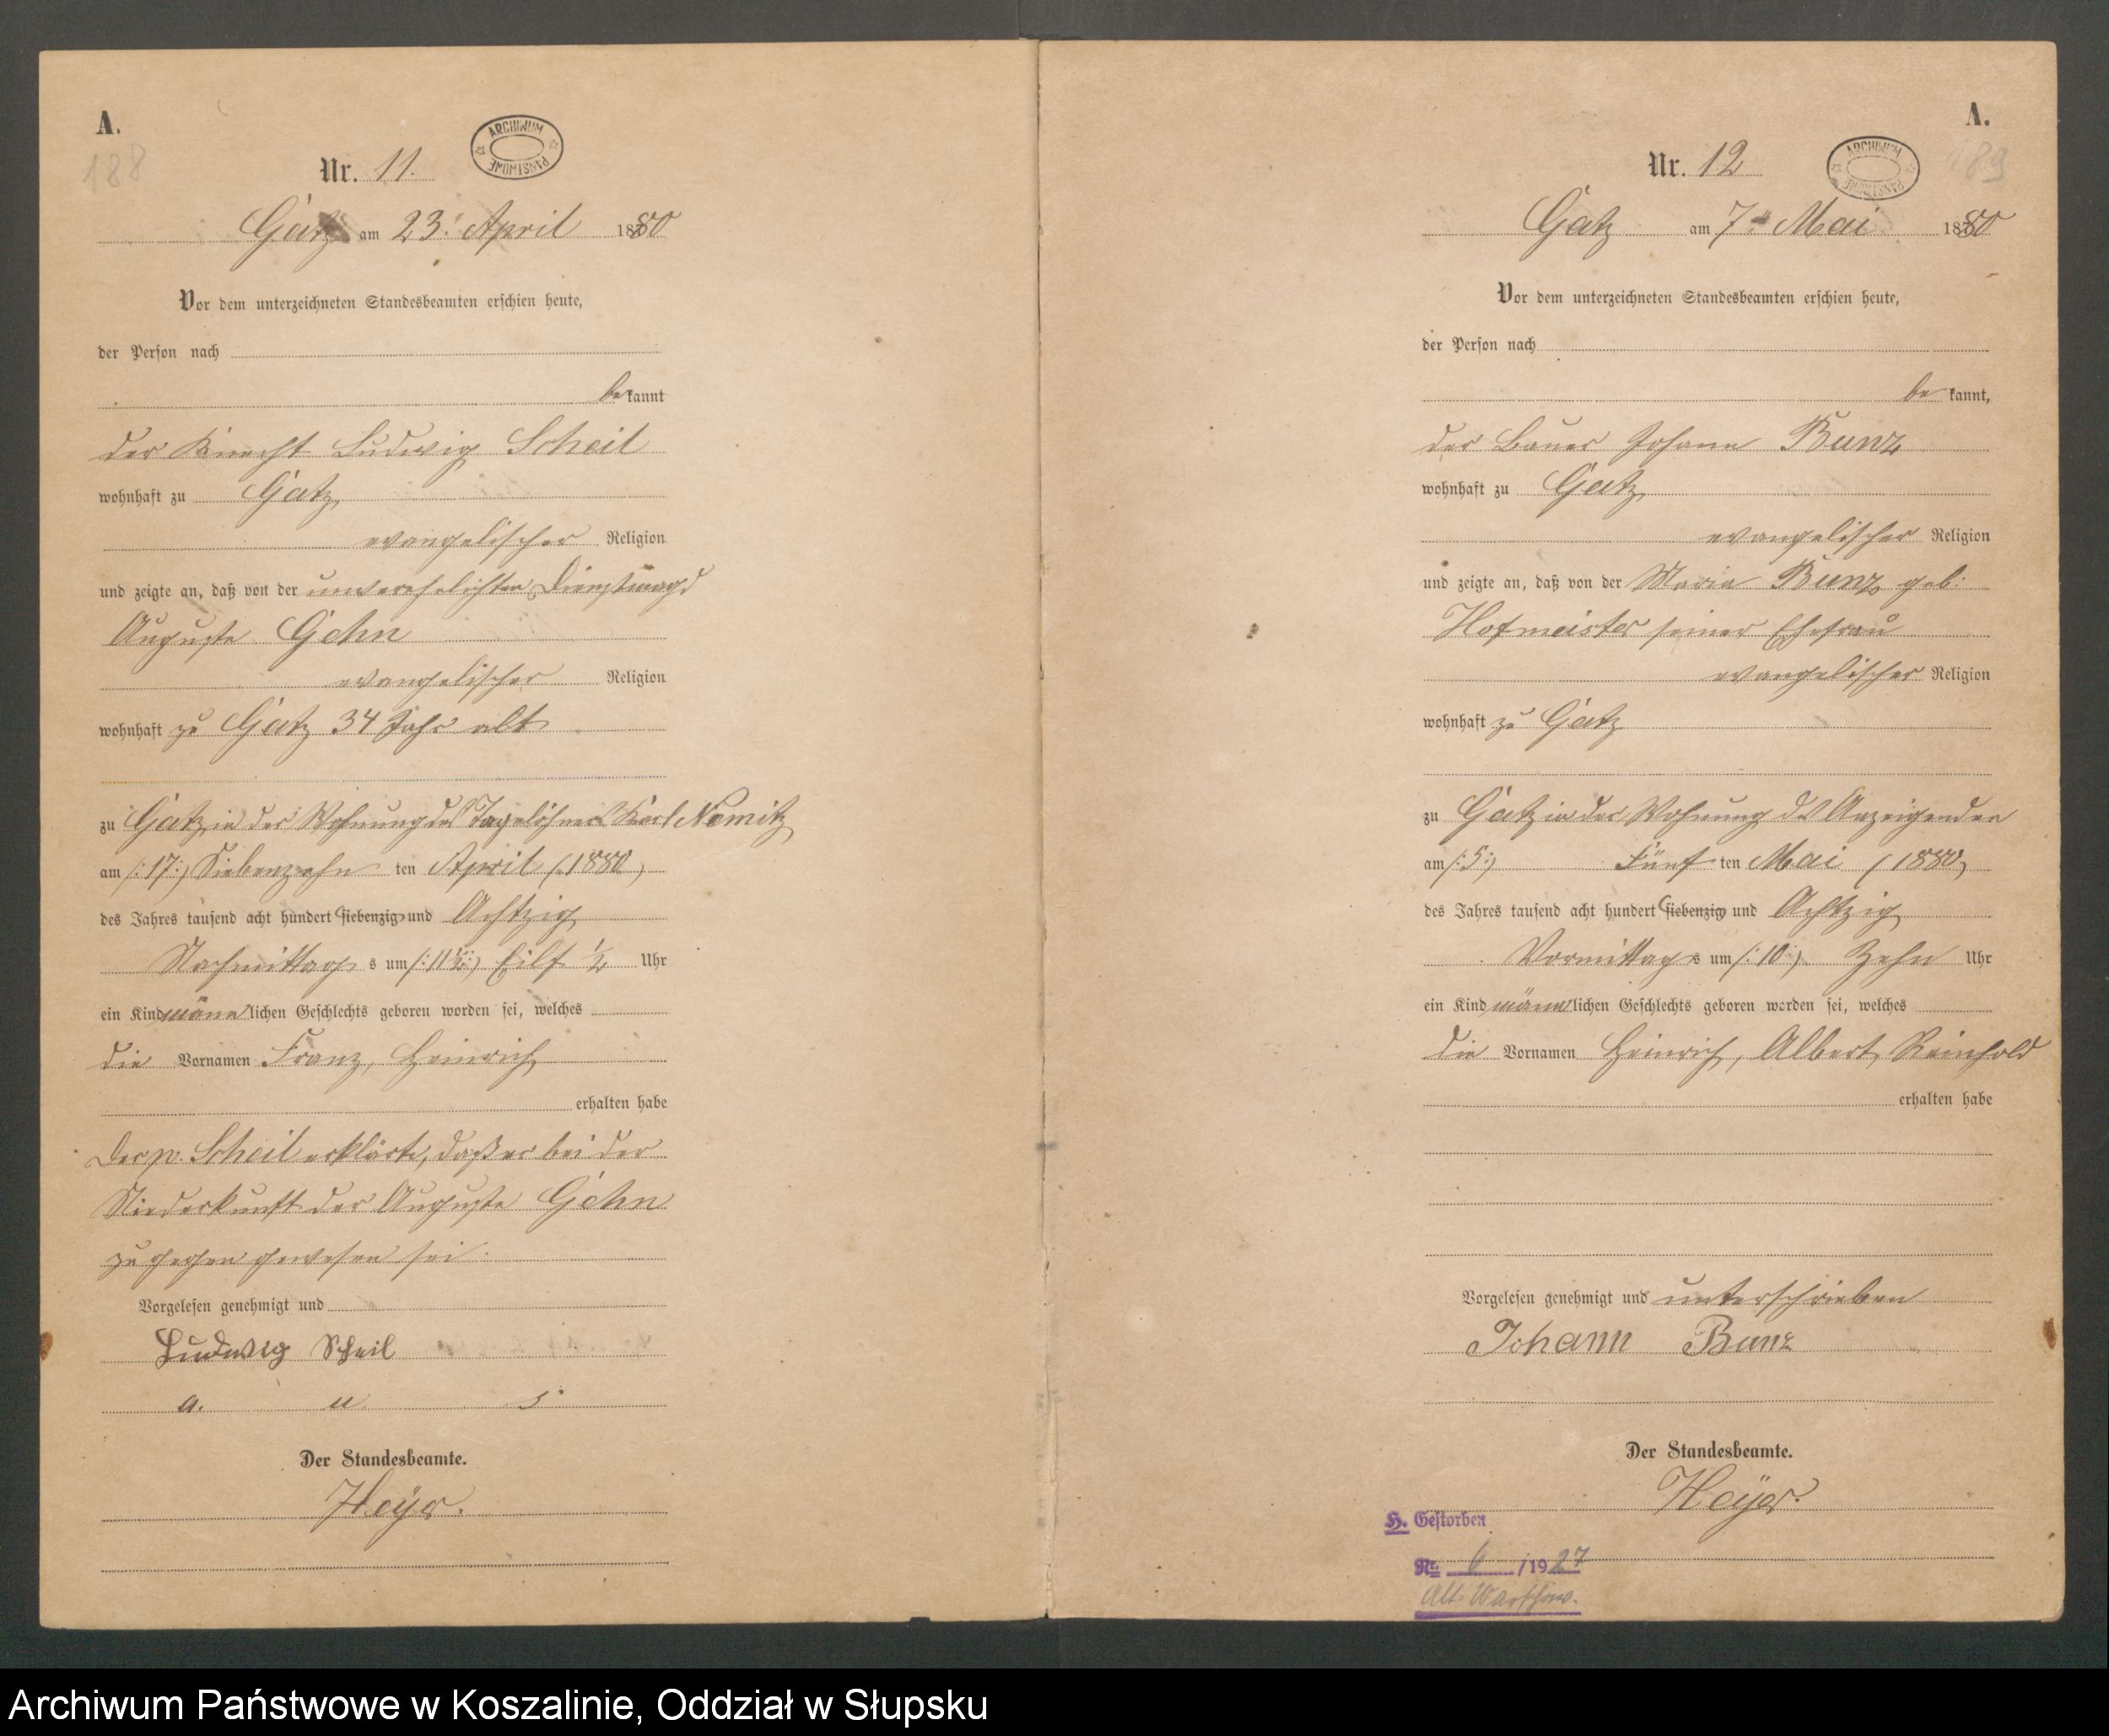 A.
188
Nr. 11.
ARCHIWUM PAŃSTWOWE
Gatz am 23t April 1880
Vor dem unterzeichneten Standesbeamten erschien heute,
der Person nach
bekannt
der Knecht Ludwig Scheil
wohnhaft zu Gatz
evangelischer Religion
und zeigte an, daß von der unverehelichten Dienstmagd
Auguste Gehn
evangelischer Religion
wohnhaft zu Gatz 34 Jahr alt
zu Gatz in der Wohnung des Tagelöhners Karl Nemitz
am /:17:/ Siebenzehn ten April (1880)
des Jahres tausend acht hundert siebenzig und Achtzig
Nachmittags um /:11½:/ Eilf ½ Uhr
ein Kind männlichen Geschlechts geboren worden sei, welches
die Vornamen Franz, Heinrich
erhalten habe
Der p. Scheil erklärte, daß er bei der
Niederkunft der Auguste Gehn
zugegen gewesen sei.
Vorgelesen genehmigt und
Ludwig Scheil
a. u. s.
Der Standesbeamte.
Heyer.
A.
189
Nr. 12
ARCHIWUM PAŃSTWOWE
Gatz am 7t Mai 1880
Vor dem unterzeichneten Standesbeamten erschien heute,
der Person nach
be kannt,
der Bauer Johann Bunz
wohnhaft zu Gatz
evangelischer Religion
und zeigte an, daß von der Maria Bunz geb:
Hofmeister seiner Ehefrau
evangelischer Religion
wohnhaft zu Gatz
zu Gatz in der Wohnung des Anzeigenden
am /:5:/ Fünf ten Mai (1880)
des Jahres tausend acht hundert siebenzig und Achtzig
Vormittags um /:10:/ Zehn Uhr
ein Kind männlichen Geschlechts geboren worden sei, welches
die Vornamen Heinrich, Albert, Reinhold
erhalten habe
Vorgelesen genehmigt und unterschrieben
Johann Bunz
Der Standesbeamte.
Heyer.
H. Gestorben
Nr. 6 /1927
Alt-Warschow.
Archiwum Państwowe w Koszalinie, Oddział w Słupsku